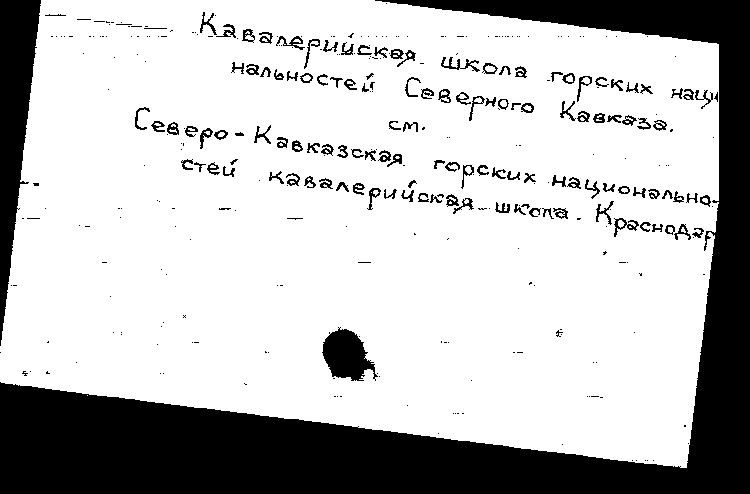 Кавалерийская школа горских наци
нальностей Северного Кавказа.
см.
Северо-Кавказская горских национально-
стей кавалерийская школа. Краснодар